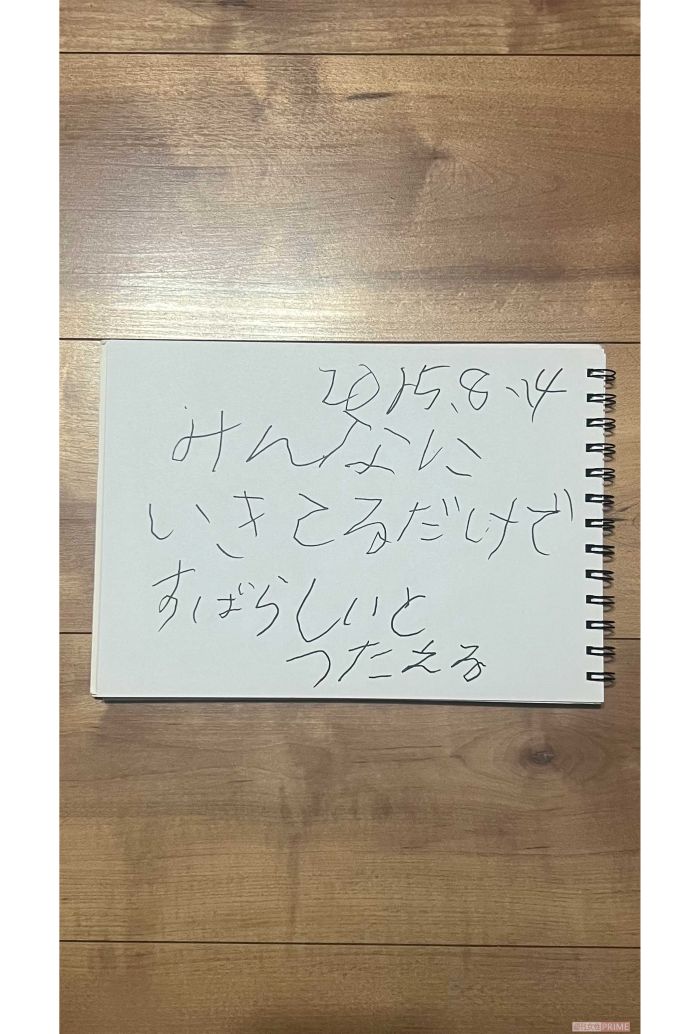 2015.8.14
みんなに
いきてるだけで
すばらしいと
つたえる
週刊女性PRIME